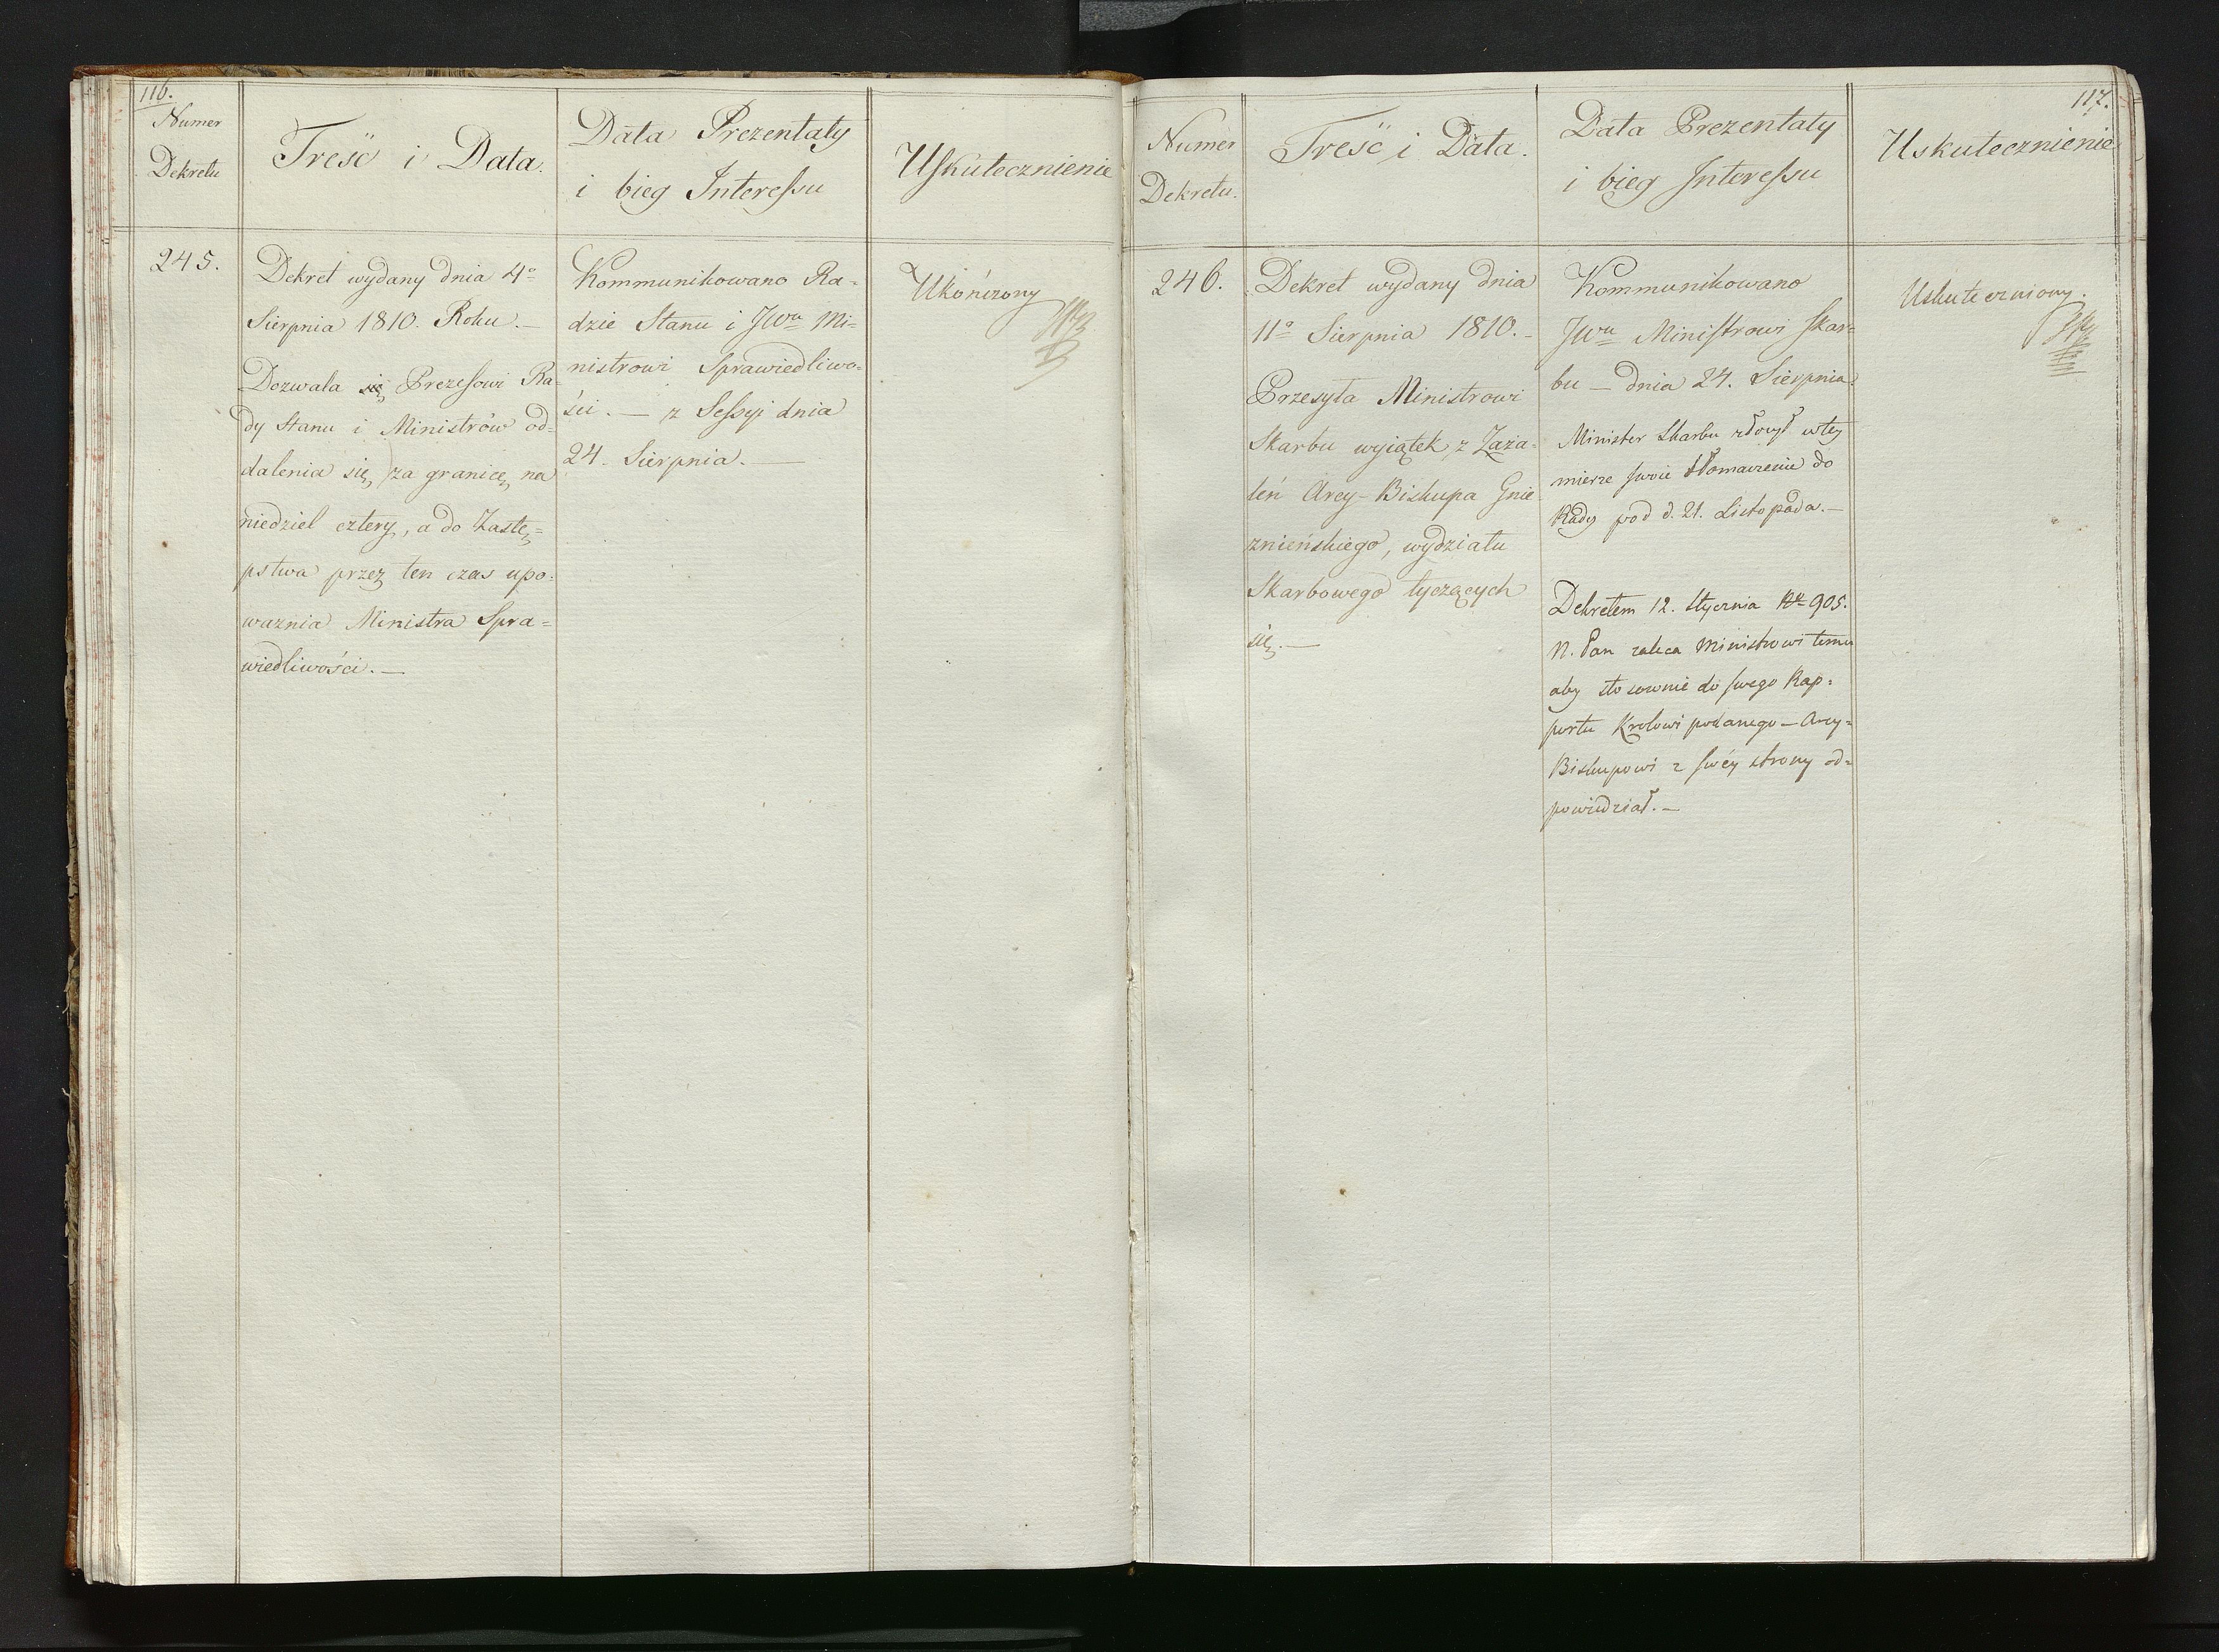 116.
Numer
Dekretu
Treść i Data.
Data Prezentaty
i bieg Interessu
Uskutecznienie
245.
Dekret wydany dnia 4o
Sierpnia 1810. Roku. —
Dozwala się Prezesowi Ra=
dy Stanu i Ministrów od=
dalenia się za granicę na
niedziel cztery, a do Zastę=
pstwa przez ten czas upo=
ważnia Ministra Spra=
wiedliwości. —
Kommunikowano Ra=
dzie Stanu i JWu Mi=
nistrowi Sprawiedliwo=
ści. — z Sessyi dnia
24. Sierpnia. —
Ukończony
117.
Numer
Dekretu.
Treść i Data.
Data Prezentaty
i bieg Interessu
Uskutecznienie
246.
Dekret wydany dnia
11o Sierpnia 1810. –
Przesyła Ministrowi
Skarbu wyiątek z Zaża=
leń Arcy-Biskupa Gnie=
znieńskiego, wydziału
Skarbowego tyczących
się. —
Kommunikowano
JWu Ministrowi Skar=
bu — dnia 24. Sierpnia.
Minister Skarbu złożył w tey
mierze swoie tłomaczenie do
Rady pod d. 21. Listopada. —
Dekretem 12. Stycznia No 905.
N. Pan zaleca Ministrowi temu
aby stosownie do swego Rap=
portu Krolowi podanego — Arcy=
Biskupowi z swéy strony od=
powiedział. —
Uskuteczniony.